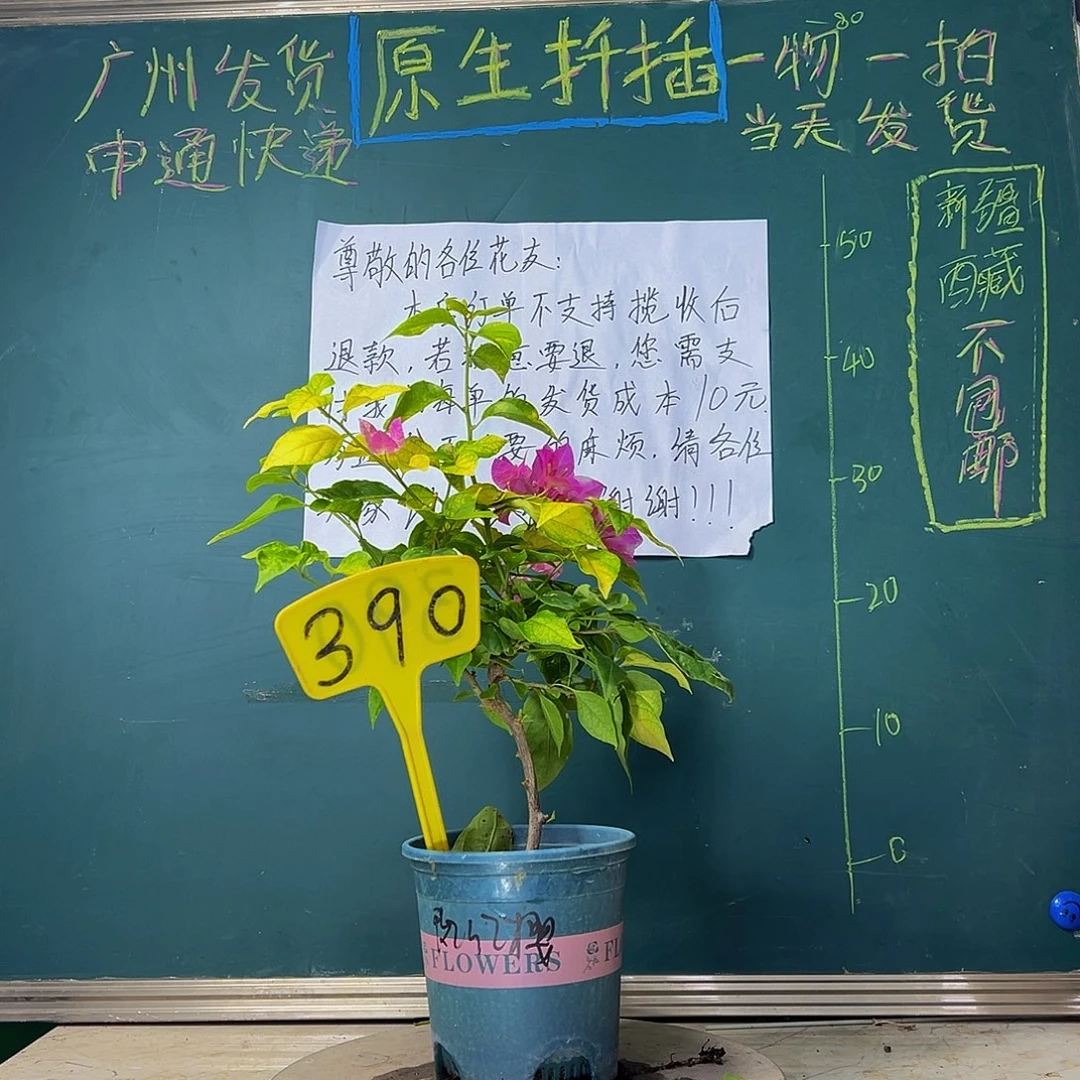 广州发货
原生扦插
一物一拍
申通快递
当天发货
新疆
西藏
不包邮
尊敬的各位花友:
订单不支持揽收后
退款,若 要退,您需支
每单的发货成本10元
要的麻烦.请各位
谢谢!!!
50
40
30
20
10
0
390
FLOWERS
FL